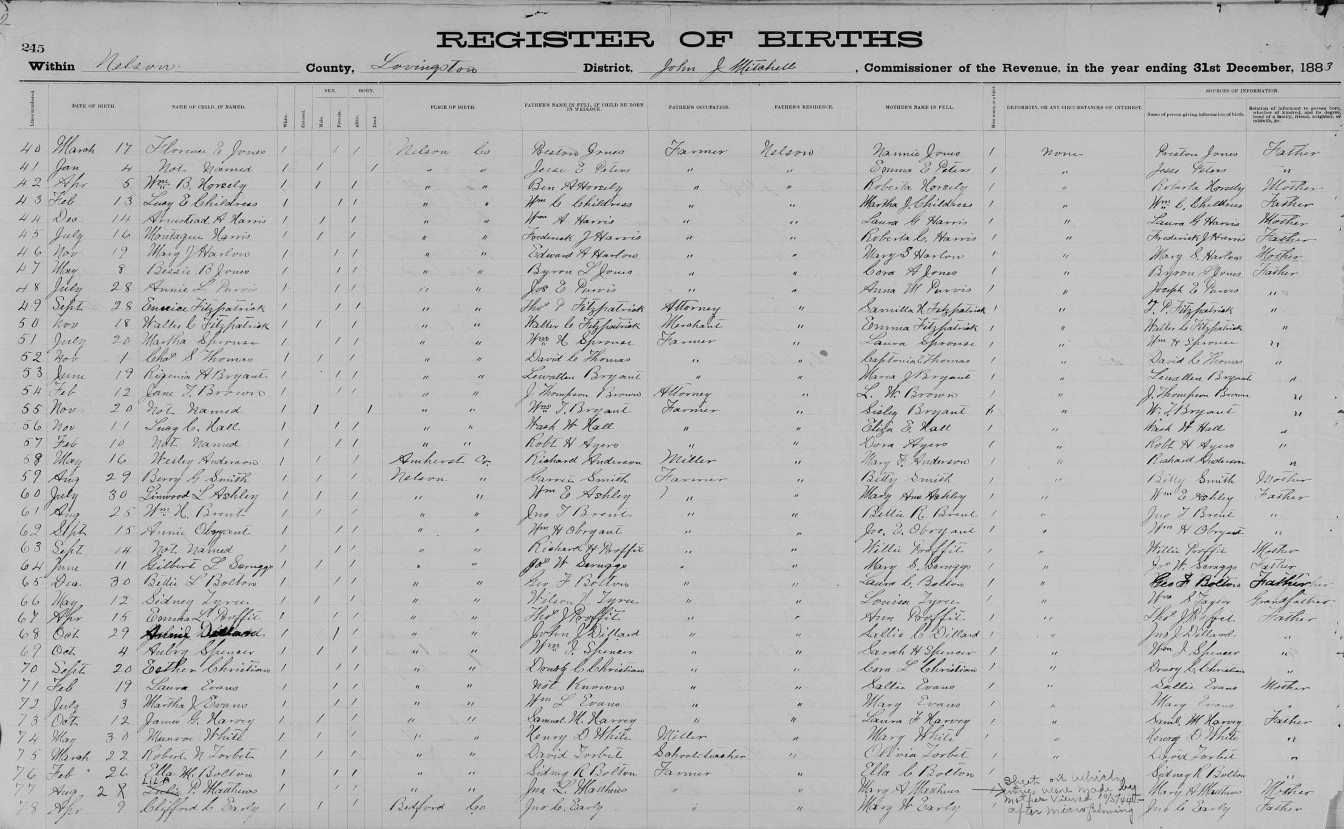 245
REGISTER OF BIRTHS
Within Nelson County, Lovingston District, John J Mitchell, Commissioner of the Revenue, in the year ending 31st December, 1883
DATE OF BIRTH. NAME OF CHILD, IF NAMED. White. Colored. SEX. Male. Female. BORN. Alive. Dead. PLACE OF BIRTH. FATHER'S NAME IN FULL, IF CHILD BE BORN IN WEDLOCK. FATHER'S OCCUPATION. FATHER'S RESIDENCE. MOTHER'S NAME IN FULL. DEFORMITY, OR ANY CIRCUMSTANCES OF INTEREST. SOURCES OF INFORMATION. Name of person giving information of birth.
40 March 17 Florence E Jones 1 / / Nelson Co Preston Jones Farmer Nelson Nannie Jones 1 none Preston Jones Father
41 Jan 4 Not Named 1 / / " " Jesse E Peters " " Emma E Peters 1 " Jesse Peters "
42 Apr 5 Wm B. Horsely 1 / / " " Ben A Horsely " " Roberta Horsely 1 " Roberta Horsely Mother
43 Feb 13 Lucy E Childress 1 / / " " Wm C Childress " " Martha J Childress 1 " Wm C. Childress Father
44 Dec 14 Armistead A Harris 1 / / " " Wm A Harris " " Laura G Harris 1 " Laura G Harris Mother
45 July 16 Montague Harris 1 / / " " Frederick J Harris " " Roberta C. Harris 1 " Frederick J Harris Father
46 Nov 19 Mary J Harlow 1 / / " " Edward H Harlow " " Mary S Harlow 1 " Mary S Harlow Mother
47 May 8 Bessie B Jones 1 / / " " Byron L Jones " " Cora A Jones 1 " Byron L Jones Father
48 July 28 Annie L Purvis 1 / / " " Jos E Purvis " " Anna M Purvis 1 " Joseph E Purvis "
49 Sept 28 Eunice Fitzpatrick 1 / / " " Thos P Fitzpatrick Attorney " Fitzpatrick 1 " T. P. Fitzpatrick "
50 Nov 18 Walter C Fitzpatrick 1 / / " " Walter C Fitzpatrick Merchant " Emma Fitzpatrick 1 " Walter C. Fitzpatrick "
51 July 20 Martha Sprouse 1 / / " " Wm H Sprouse Farmer " Laura Sprouse 1 " Wm H Sprouse "
52 Nov 1 Chas S Thomas 1 / / " " David C Thomas " " Thomas 1 " David C Thomas "
53 June 19 H Bryant 1 / / " " Lewallen Bryant " " Maria J Bryant 1 " Lewallen Bryant "
54 Feb 12 Jane T. Brown 1 / / " " J Thompson Brown Attorney " L. W. Brown 1 " J. Thompson Brown "
55 Nov 20 Not Named 1 / / " " Wm T. Bryant Farmer " Sisley Bryant 1 " W. T Bryant "
56 Nov 11 Lucy C. Hall 1 / / " " Wash W Hall " " Eliza E Hall 1 " Wash W Hall "
57 Feb 10 Not Named 1 / / " " Robt H Ayers " " Cora Ayers 1 " Robt H Ayers "
58 May 16 Wesley Anderson 1 / / Amherst Co. Richard Anderson Miller " Mary F. Anderson 1 " Richard Anderson "
59 Aug 29 Berry G Smith 1 / / Nelson " Smith Farmer " Betty Smith 1 " Betty Smith Mother
60 July 30 Linwood L Ashley 1 / / " " Wm E Ashley " Mary Ann Ashley 1 " Wm E Ashley Father
61 Aug 25 Wm H. Brent 1 / / " " Jno T Brent " " Bettie R Brent 1 " Jno T Brent "
62 Sept 15 Annie Obryant 1 / / " " Wm H Obryant " " Joe. E. Obryant 1 " Wm H Obryant "
63 Sept 14 Not Named 1 / / " " Richard H Proffit " " Willie Proffit 1 " Willie Proffit Mother
64 June 11 Gilbert L Scruggs 1 / / " " Jos W Scruggs " " Mary S. Scruggs 1 " Jos W. Scruggs Father
65 Dec 30 Betie L Bolton 1 / / " " Geo F Bolton " " Laura C. Bolton 1 " Geo F Bolton Father
66 May 12 Sidney Tyree 1 / / " " Wilson J Tyree " " Louisa Tyree 1 " Wm S Taylor Grandfather
67 Apr 15 Emma L Proffit 1 / / " " Thos J Proffit " " Ann Proffit 1 " Thos J Proffit Father
68 Oct 29 Annie Dillard 1 / / " " John J Dillard " " Sallie C Dillard 1 " Jno J Dillard "
69 Oct 4 Aubry Spencer 1 / / " " Wm J. Spencer " " Sarah H Spencer 1 " Wm J Spencer "
70 Sept 20 Esther Christian 1 / / " " Drury C Christian " " Cora L Christian 1 " Drury C. Christian "
71 Feb 19 Laura Evans 1 / / " " Not Known " " Sallie Evans 1 " Sallie Evans Mother
72 July 3 Martha J Evans 1 / / " " Wm L Evans " " Mary Evans 1 " Mary Evans "
73 Oct 12 James G. Harvey 1 / / " " Samuel M. Harvey " " Laura F Harvey 1 " Saml M. Harvey Father
74 May 30 Munroe White 1 / / " " Henry D White Miller " Mary White 1 " Henry D White "
75 March 22 Robert N Torbet 1 / / " " David Torbet School teacher " Torbet 1 " David Torbet "
76 Feb 26 Ella M. Bolton 1 / / " " Sidney R Bolton Farmer " Ella C Bolton 1 " Sidney R Bolton "
LILA
77 Aug 28 P. Mathews 1 / / " " Jno L. Matthews " " Mary A Mathews 1 Mary H Matthews Mother
Sheet on which entries were made by mother viewed after microfilming
78 Apr 9 Clifford C Early 1 / / Bedford Co. Jno C. Early " " Mary W Early 1 Jno C Early Father